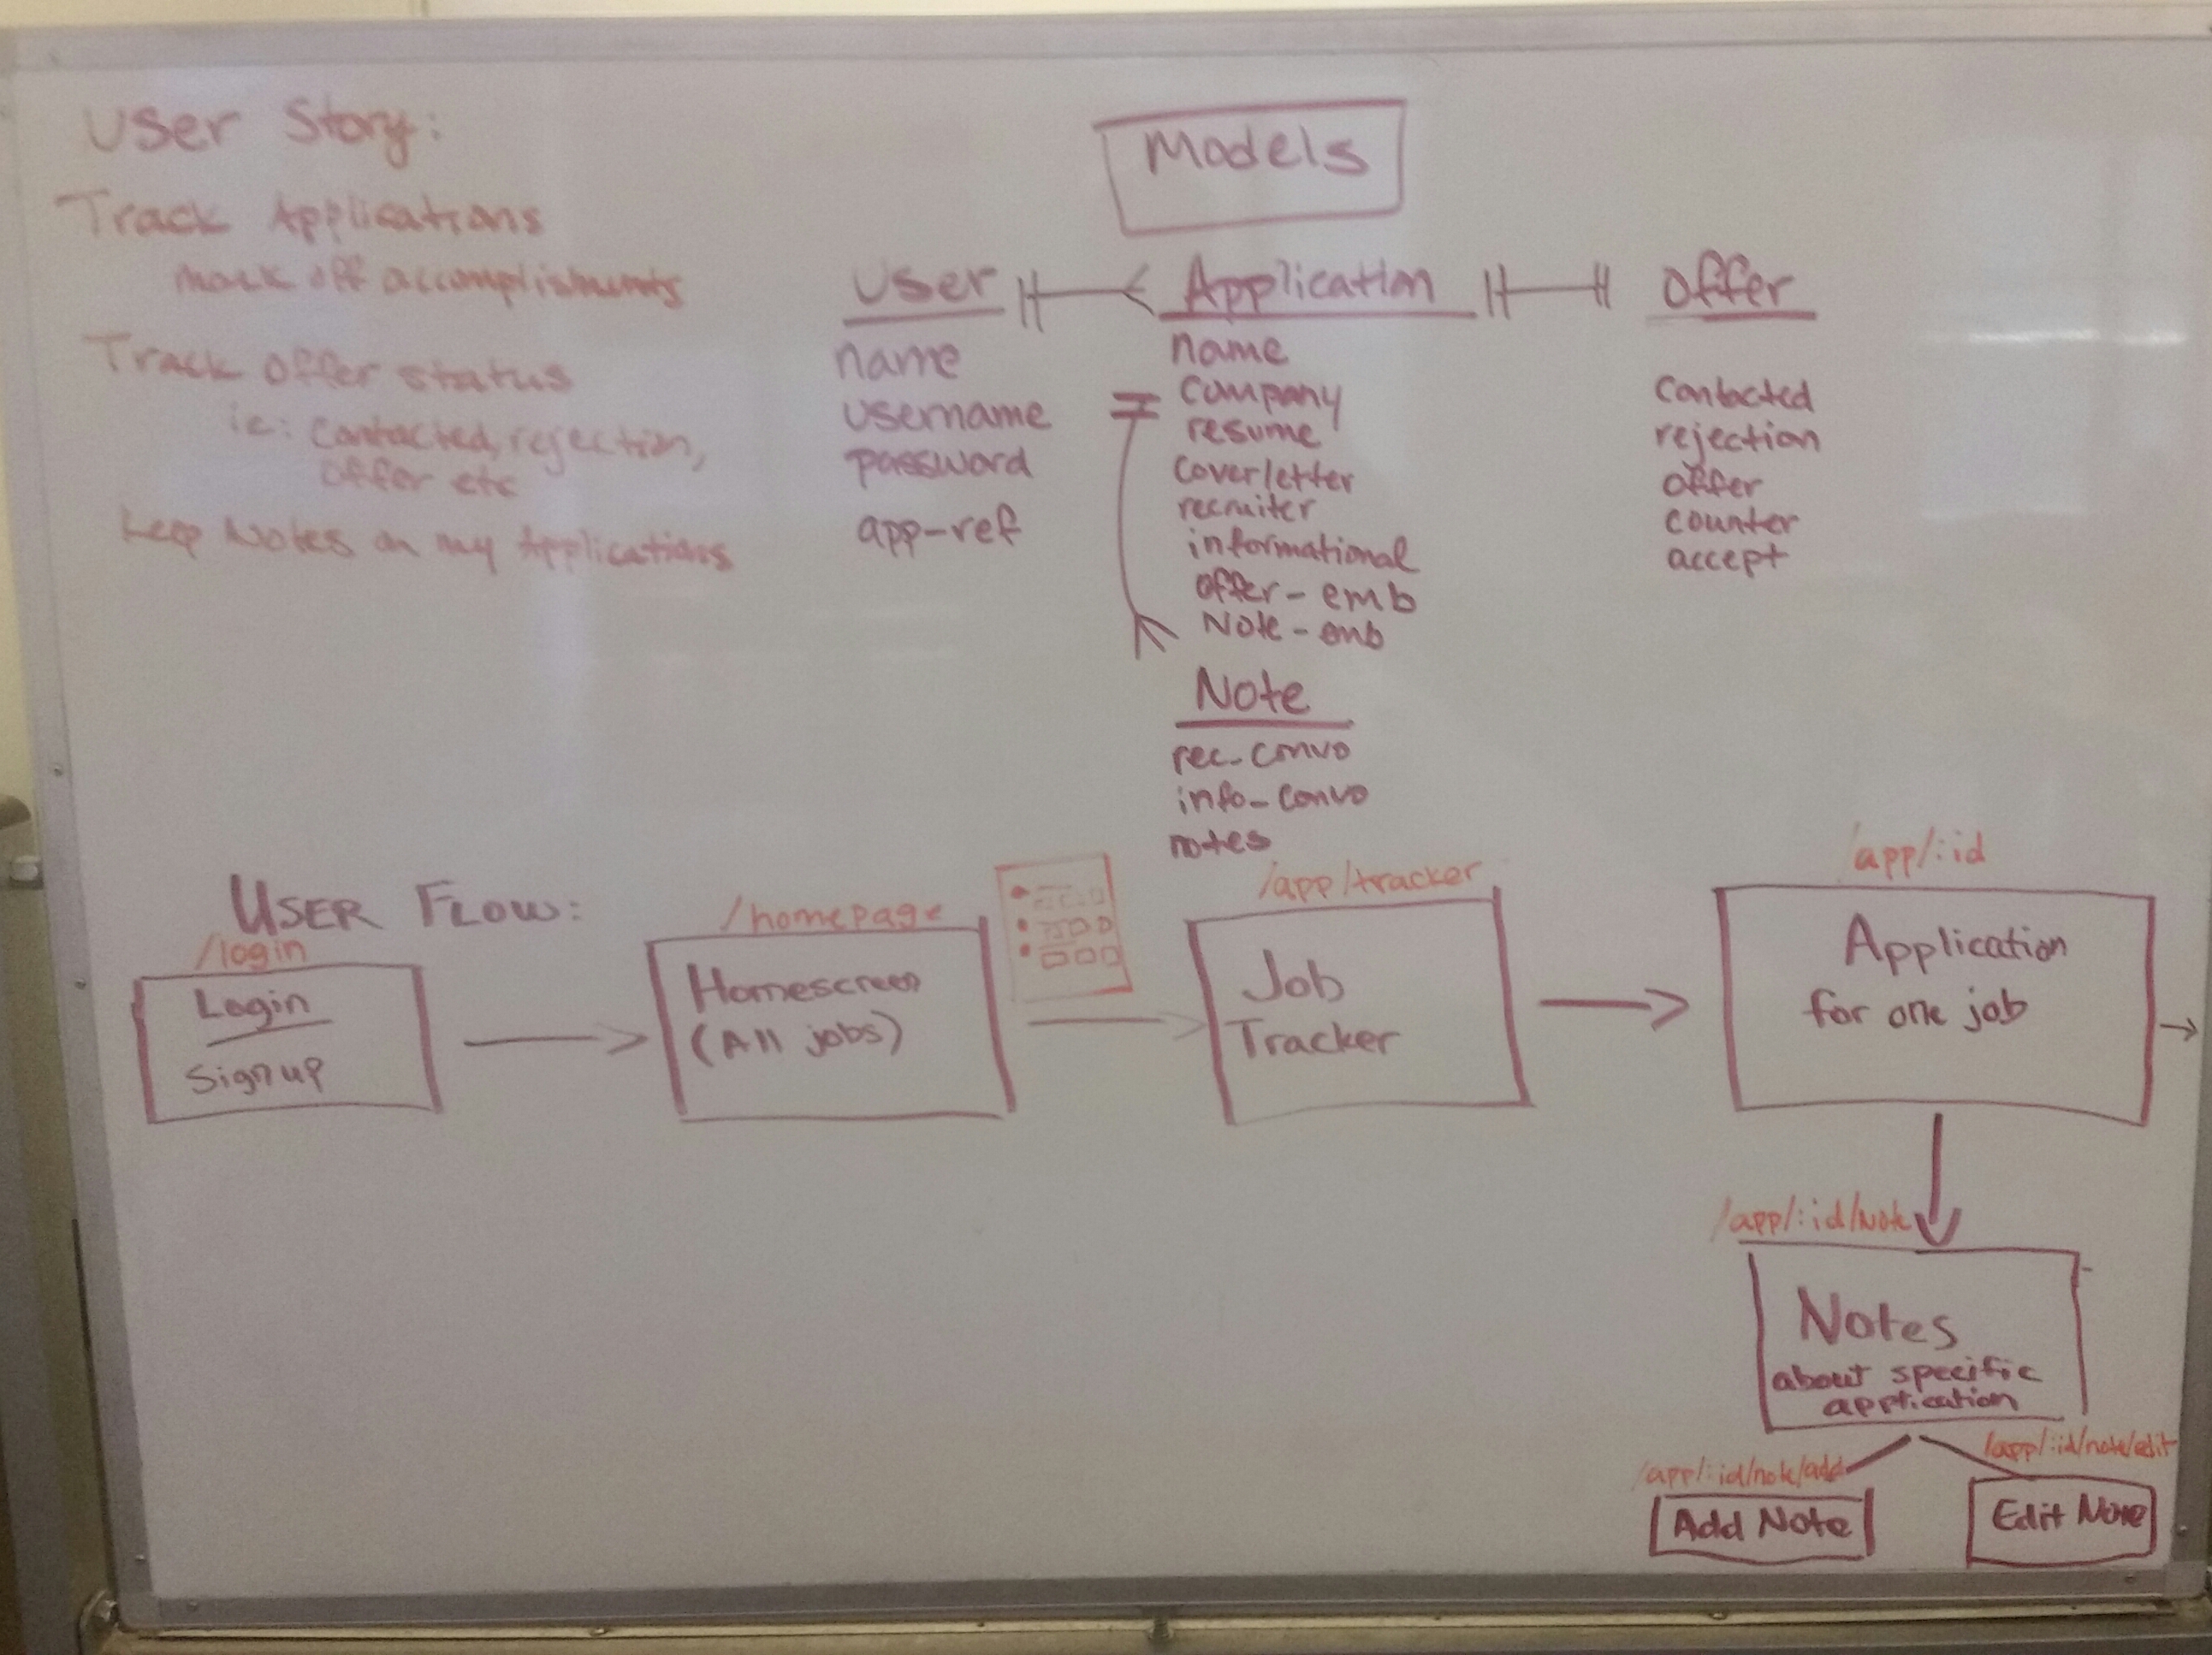 User Story:
Track Applications
mark off accomplishments
Track Offer status
ie: Contacted, rejection,
offer etc
Keep Notes on my Applications
Models
User
name
username
password
app-ref
Application
name
company
resume
coverletter
recruiter
informational
offer-emb
Note-emb
Offer
Contacted
rejection
offer
counter
accept
Note
rec_convo
info_convo
notes
USER FLOW:
/login
Login
Signup
/homepage
Homescreen
(All jobs)
/app/tracker
Job
Tracker
/app/:id
Application
for one job
/app/:id/Note
Notes
about specific
application
/app/:id/note/add
Add Note
/app/:id/note/edit
Edit Note